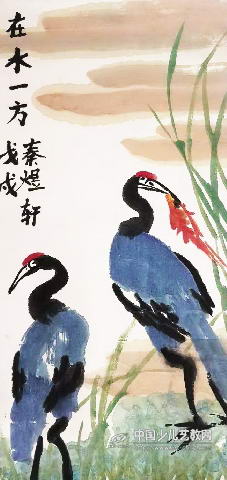 在水一方
秦煜轩
戊戌
中国少儿艺教网